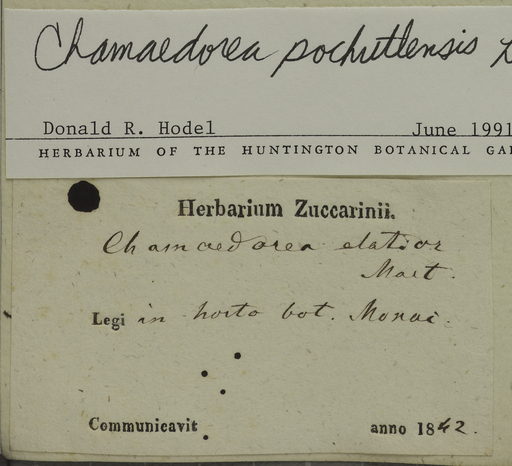 Chamaedorea pochutlensis
Donald R. Hodel June 1991
HERBARIUM OF THE HUNTINGTON BOTANICAL GA
Herbarium Zuccarinii.
Chamaedorea elatior
Mart.
Legi in horto bot. Monac.
Communicavit anno 1842.